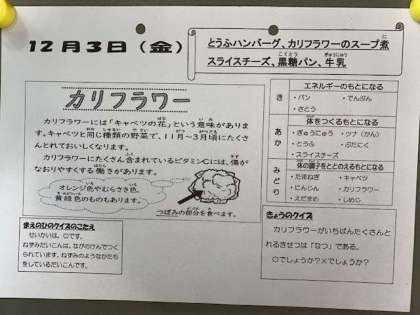 12月3日(金)
とうふハンバーグ、カリフラワーのスープ煮
スライスチーズ、黒糖パン、牛乳
カリフラワー
カリフラワーには「キャベツの花」という意味がありま
す。キャベツと同じ種類の野菜で、11月～3月頃にたくさ
んとれておいしくなります。
カリフラワーにたくさん含まれているビタミンCには、傷が
なおりやすくする働きがあります。
オレンジ色やむらさき色、
黄緑色のものもあります。
つぼみの部分を食べます。
まえのひのクイズのこたえ
せいかいは、〇です。
ねずみだいこんは、ながのけんでつく
られています。ねずみのようなかたち
をしているだいこんです。
エネルギーのもとになる
き
・パン ・でんぷん
・さとう
体をつくるもとになる
あか
・ぎゅうにゅう ・ツナ(かん)
・とうふ ・ぶたにく
・スライスチーズ
体の調子をととのえるもとになる
みどり
・たまねぎ ・キャベツ
・にんじん ・カリフラワー
・えだまめ ・しめじ
きょうのクイズ
カリフラワーがいちばんたくさんと
れるきせつは「なつ」である。
〇でしょうか?×でしょうか?